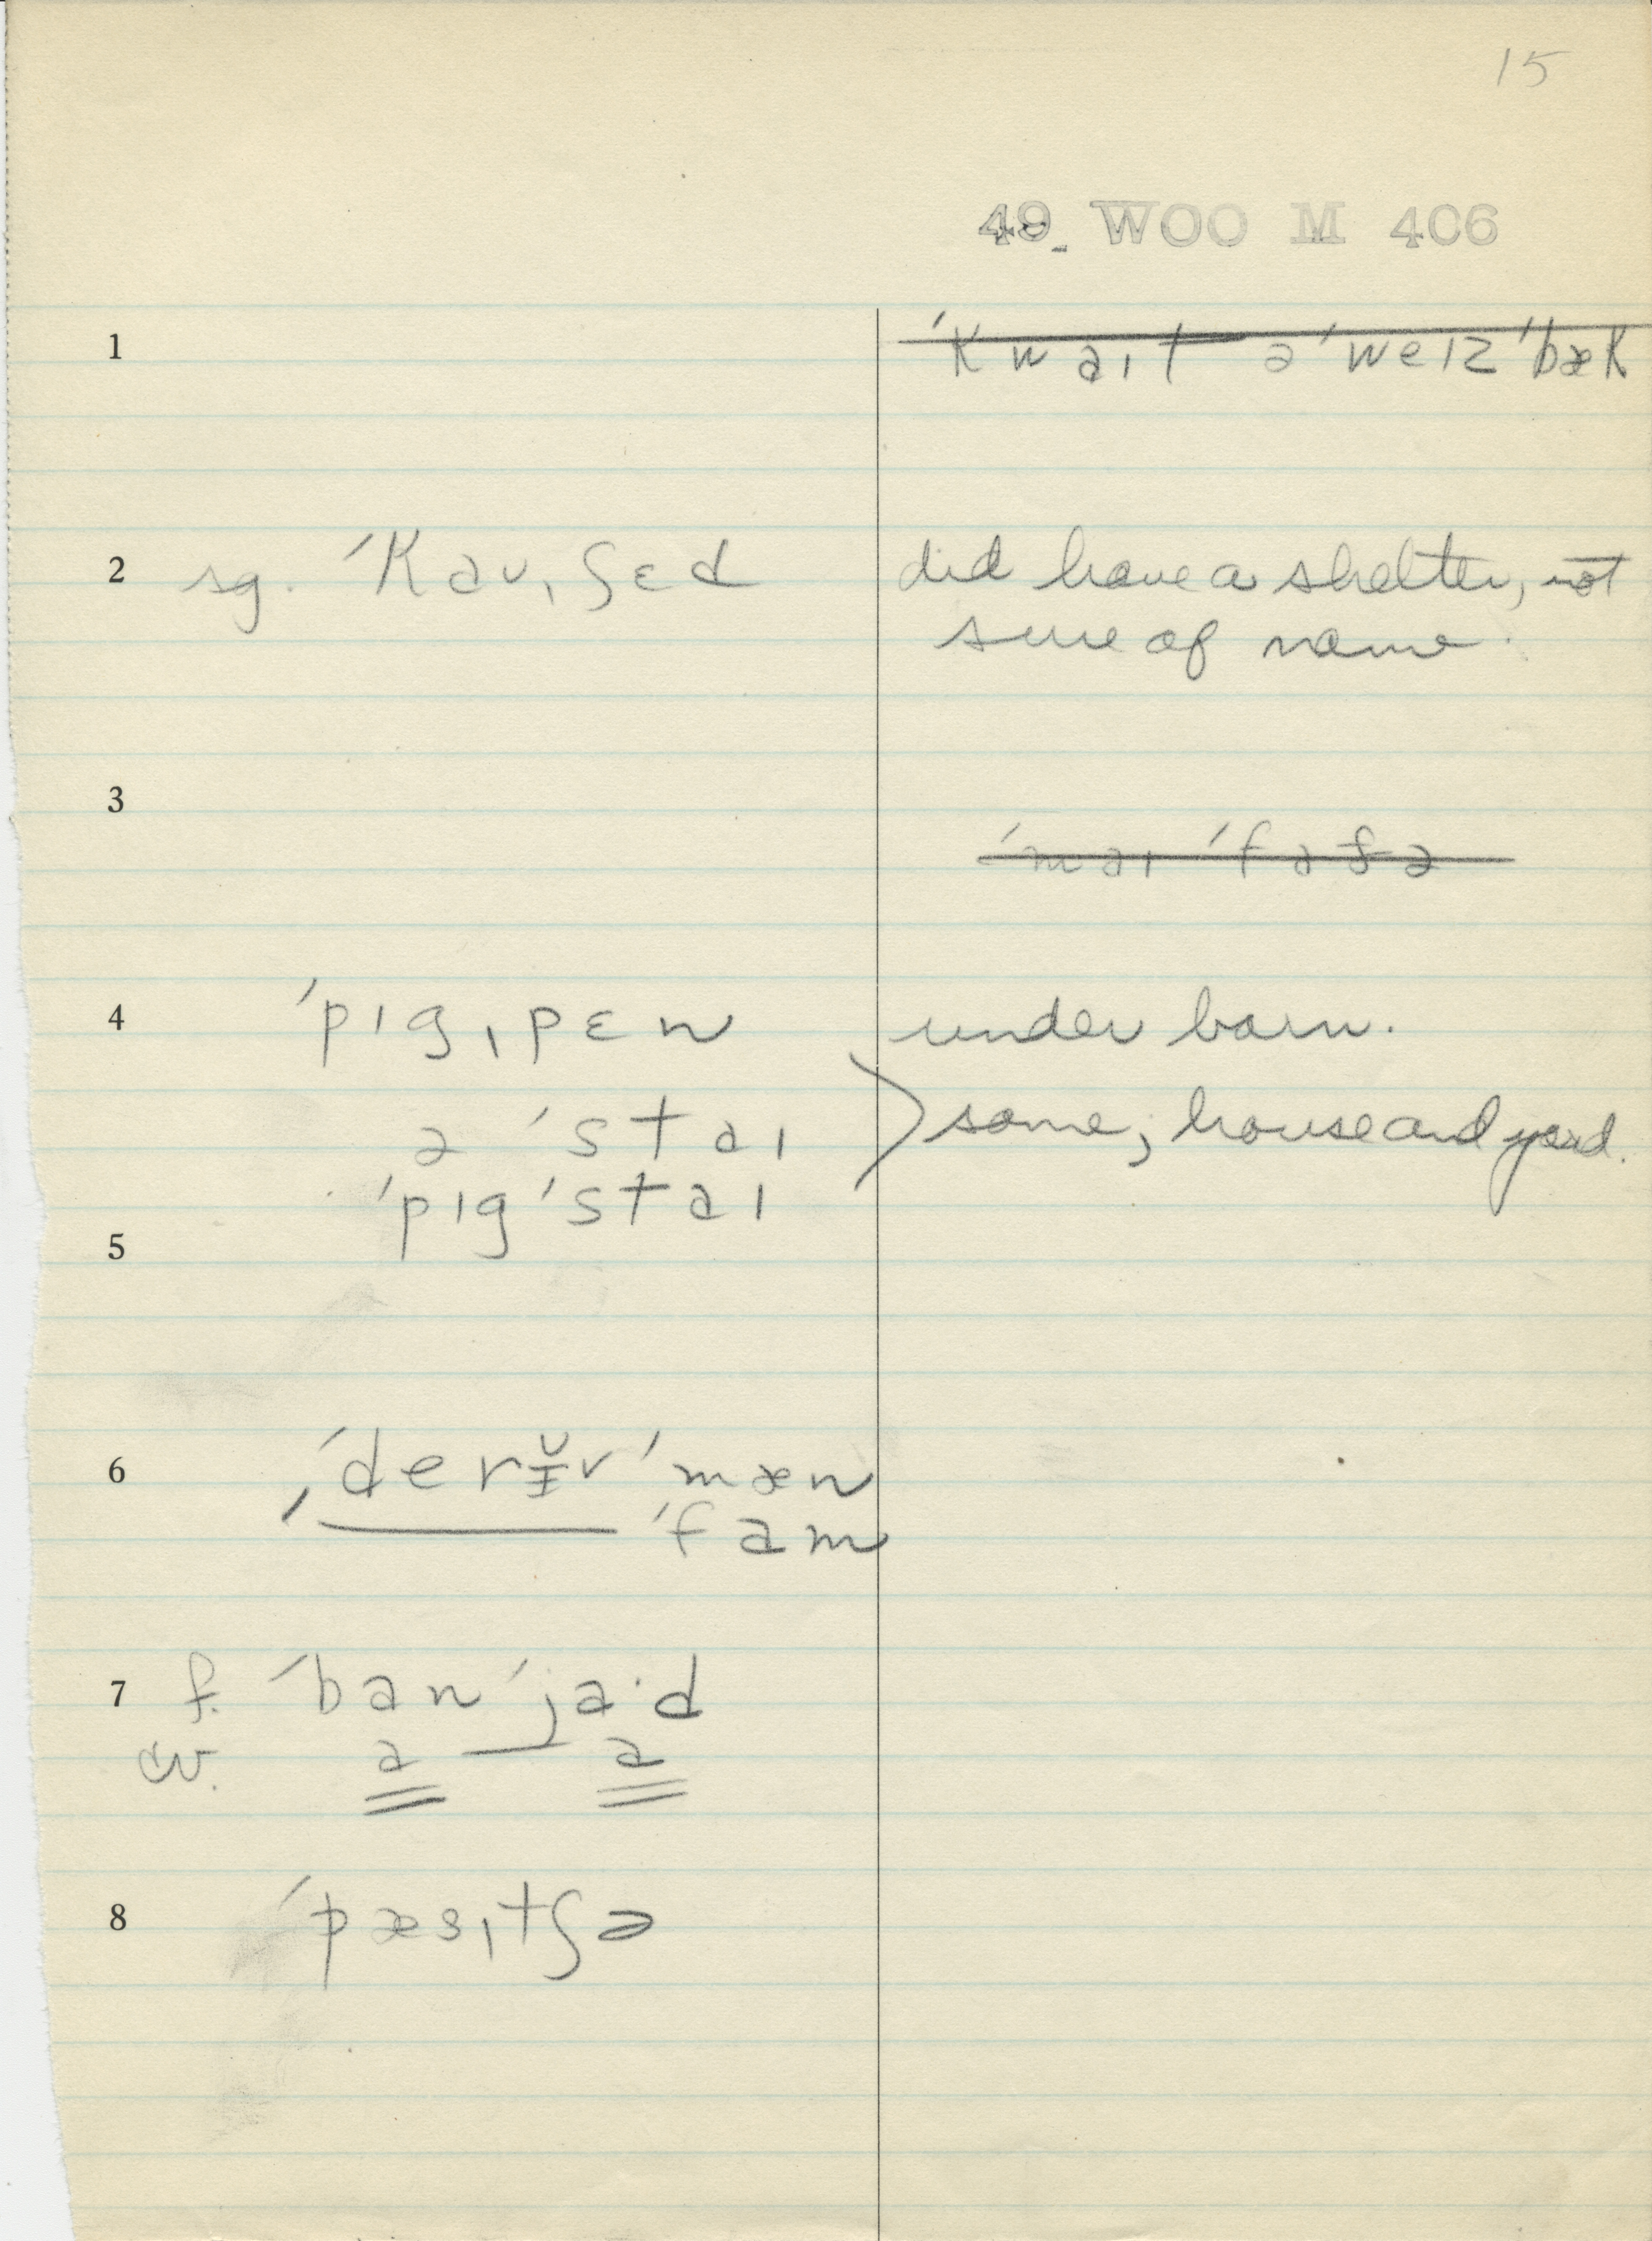 15
49 WOO M 406
1 ˈkwaɪt ə ˈweɪz ˈbæk
2 sg. ˈkaʊˌʃɛd did have a shelter, not
sure of name.
3
ˈmaɪ ˈfaðə
4 ˈpɪgˌpɛn under barn.
ə ˈstaɪ same; house and yard.
ˈpɪgˈstaɪ
5
6 ˈderɪ̆r ˈmæn
ˈfam
7 f. ˈbanˈja·d
cv. a — a
8 ˈpæsˌtʃə